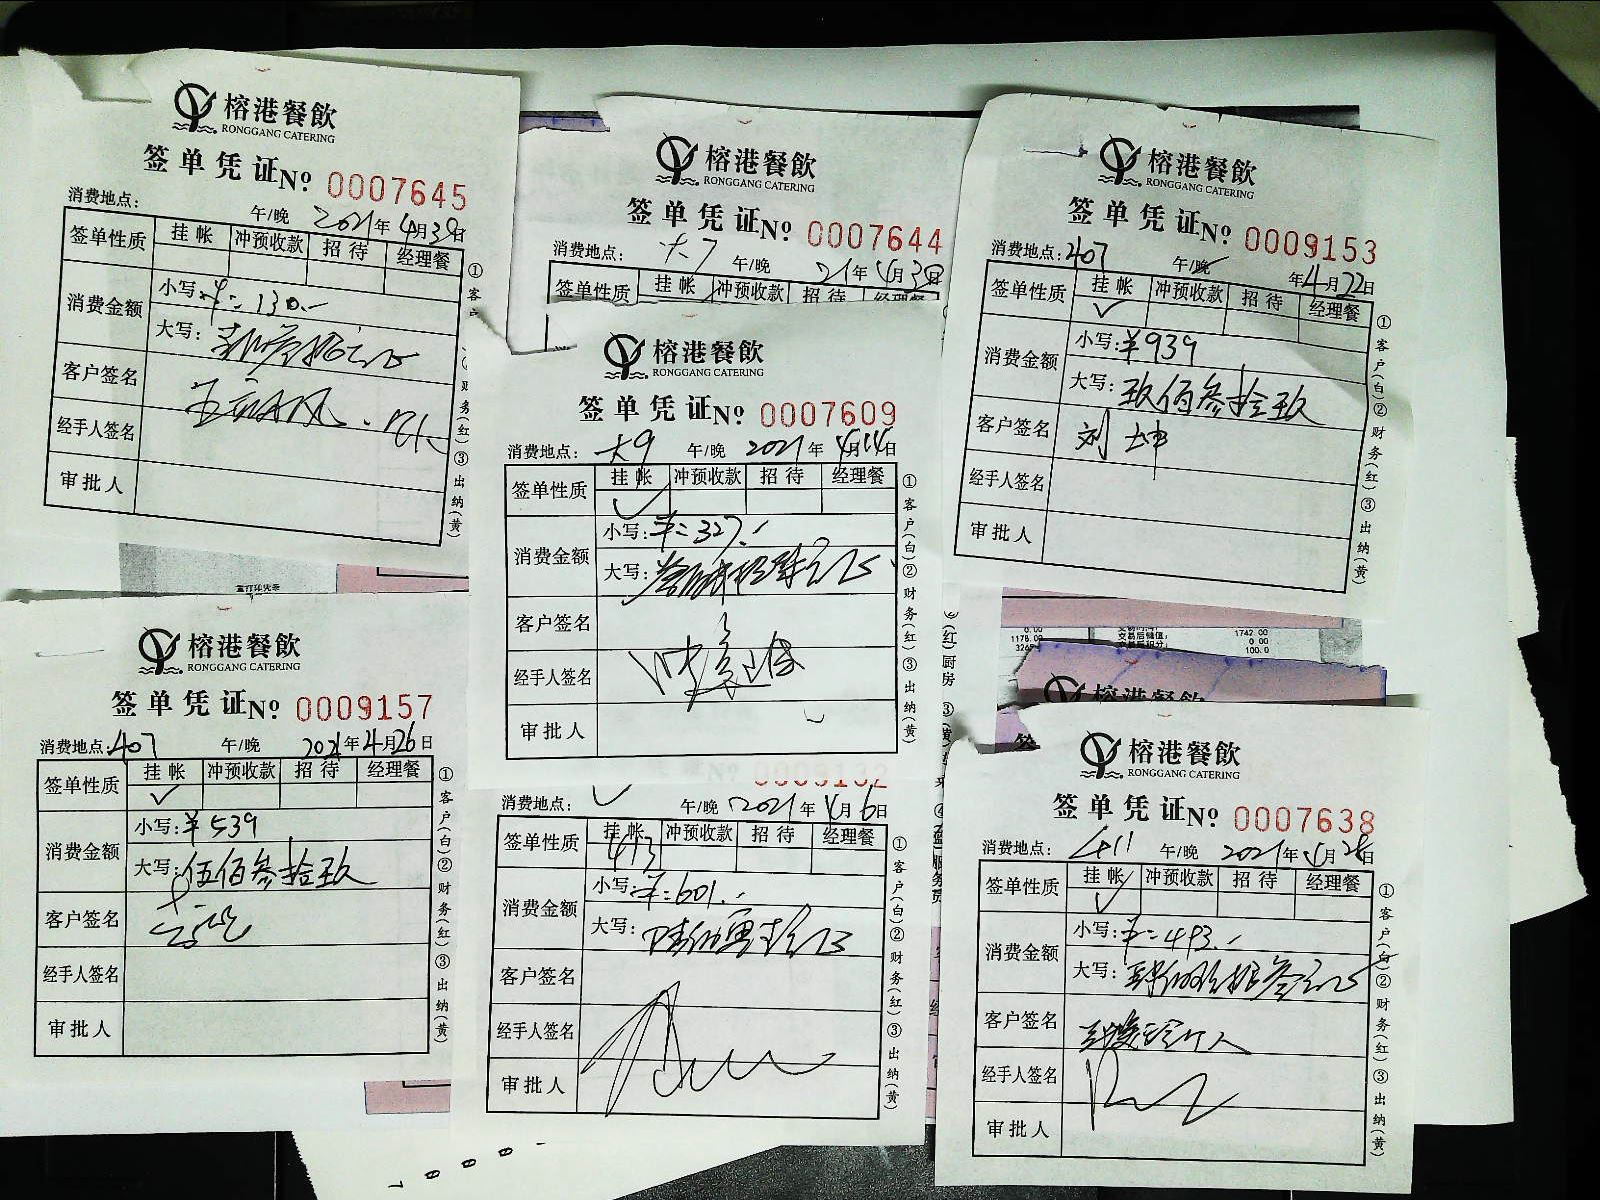 榕港餐飲
RONGGANG CATERING
签单凭证№ 0007645
消费地点: 午/晚 2021年4月30日
签单性质 挂帐 冲预收款 招待 经理餐
消费金额 小写:¥:130.-
大写:
客户签名
经手人签名
审批人
①客户
财务(红)③出纳(黄)
榕港餐飲
RONGGANG CATERING
签单凭证№ 0007644
消费地点: 大7 午/晚 21年4月30日
签单性质 挂帐 冲预收款 招待 经理餐
榕港餐飲
RONGGANG CATERING
签单凭证№ 0009153
消费地点:407 午/晚 年4月22日
签单性质 挂帐 冲预收款 招待 经理餐
✓
消费金额 小写:¥939
大写:玖佰叁拾玖
客户签名 刘坤
经手人签名
审批人
①客户(白)②财务(红)③出纳(黄)
榕港餐飲
RONGGANG CATERING
签单凭证№ 0007609
消费地点: 大9 午/晚 2021年4月14日
签单性质 挂帐 冲预收款 招待 经理餐
✓
消费金额 小写:¥:327.-
大写:叁佰贰拾柒元正
客户签名
经手人签名
审批人
①客户(白)②财务(红)③出纳(黄)
榕港餐飲
RONGGANG CATERING
签单凭证№ 0009157
消费地点:407 午/晚 2021年4月26日
签单性质 挂帐 冲预收款 招待 经理餐
✓
消费金额 小写:¥539
大写:伍佰叁拾玖
客户签名
经手人签名
审批人
①客户(白)②财务(红)③出纳(黄)
消费地点: 午/晚 2021年4月6日
签单性质 挂帐 冲预收款 招待 经理餐
413
消费金额 小写:¥:601.-
大写:陆佰零壹元正
客户签名
经手人签名
审批人
①客户(白)②财务(红)③出纳(黄)
(红)厨房③(黄)
1178.00
1742.00
0.00
100.0
榕港餐飲
榕港餐飲
RONGGANG CATERING
签单凭证№ 0007638
消费地点: 411 午/晚 2021年4月28日
签单性质 挂帐 冲预收款 招待 经理餐
✓
消费金额 小写:¥:493.-
大写:肆佰玖拾叁元正
客户签名
经手人签名
审批人
①客户(白)②财务(红)③出纳(黄)